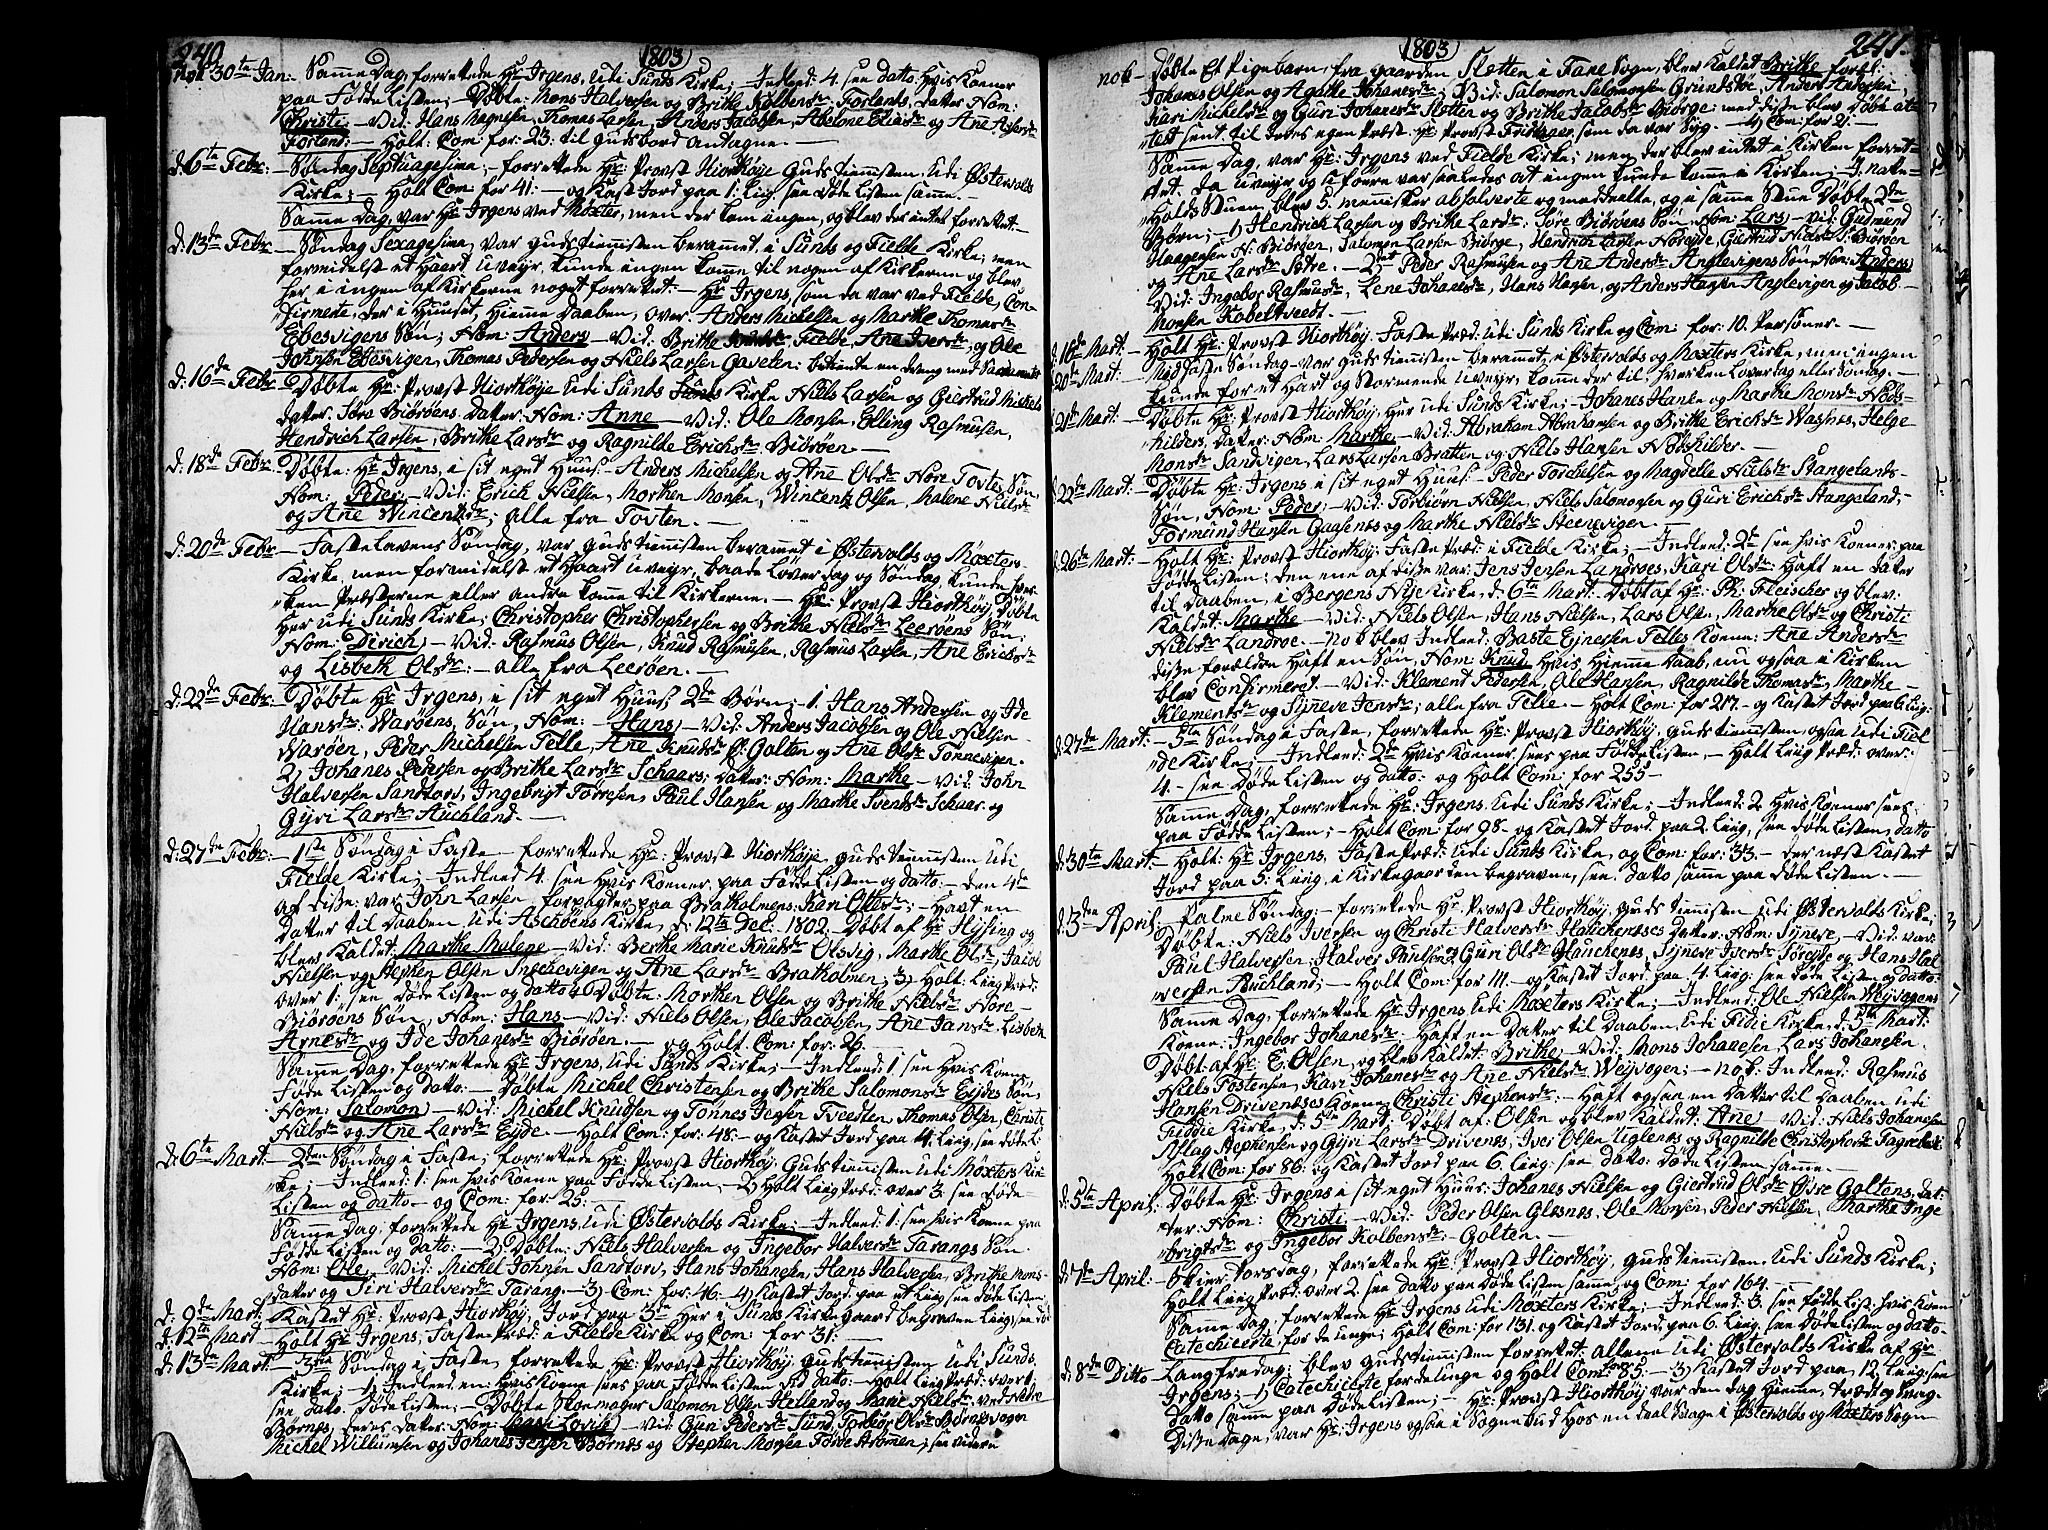 240. 1803
nok 30te Jan: Samme Dag, forrettede Hr: Irgens, udi Sunds Kirke; Indled: 4. see datto hvis Koener
paa Fødde Listen; Døbte: Mons Halversen og Brithe Kolbensdr: Forlands, datter Nom:
Christi Vid: Hans Magnesen, Thomas Larsen, Anders Jacobsen, Abelone Eliæsdr og Ane
Forland: Holt Com: for 23. til Gudsbord Antagne.
d: 6te Febr: Søndag Septuagesima, forrettede Hr: Provst Hiorthøje Gudstienisten, udi Østervolds
Kirke; Holt Com: for 41: og Kast Jord paa 1. Liig, see døde Listen samme.
Samme Dag, var Hr: Irgens ved Møxter, men der kom ingen, og blev der intet forrettet.
d: 13de Febr: Søndag Sexagesima, var gudstienisten berammet i Sunds og Fielde Kirke; men
formidelst et Haart uveyr, kunde ingen komme til nogen af Kirkerne og blev
her i ingen af Kirkerne noget forrettet: Hr: Irgens, som da var ved Fielde, Con-
firmerte, der i Huuset, Hiemme Daaben, over: Anders Michelsen og Marthe Thomasdr
Ebesvigens Søn; Nom: Anders Vid: Brithe Fielde, Ane Iversdr, og Ole
Johnsen Ebesvigen, Thomas Pedersen og Niels Larsen Gavelen:
d: 16de Febr: Døbte Hr: Provst Hiorthøje udi Sunds Kirke Niels Larsen og Giertrud Michels
datter, Søre Biørøens, datter: Nom: Anne Vid: Ole Monsen, Elling Rasmusen,
Hendrich Larsen, Brithe Larsdr og Ragnilde Erichsdr Biørøen
d: 18de Febr: Døbte: Hr: Irgens, i sit eget Huus: Anders Michelsen og Ane Olsdr Nore Tofte Søn
Nom: Peder Vid: Erich Nielsen, Morthen Monsen, Wincentz Olsen, Malene Nielsdr
og Ane Wincentzdr; alle fra Tovten.
d: 20de Febr: Fastelavens Søndag, var Gudstienisten berammet i Østervolds og Møxters
Kirke, men formidelst et Haart uveyr, baade Løverdag og Søndag, kunde hver-
ken Præsterne eller andre komme til Kirkerne. Hr: Provst Hiorthøj, Døbte
her udi Sunds Kirke; Christopher Christophersen og Brithe Nielsdr Leerøens Søn:
Nom: Dirich Vid: Rasmus Olsen, Knud Rasmusen, Rasmus Larsen, Ane Erichsdr
og Lisbeth Olsdr: alle fra Leerøen.
d: 22de Febr: Døbte Hr: Irgens, i sit eget Huus, 2de Børn; 1. Hans Andersen og Ide
Hansdr: Warøens, Søn, Nom: Hans Vid: Anders Jacobsen og Ole Nielsen
Warøen, Peder Michelsen Telle, Ane Knudsdr Golten og Ane Olsdr Tønnevigen.
2) Johanes Pedersen og Brithe Larsdr Schaars; datter: Nom: Marthe Vid: John
Halversen Sandtorv, Ingebrigt Torresen, Paul Hansen og Marthe Svendsdr Schaar og
Gyri Larsdr Auchland.
d: 27de Febr: 1ste Søndag i Faste forrettede Hr: Provst Hiorthøje, gudstienisten udi
Fielde Kirke; Indled 4. see hvis Koener paa Fødde Listen og datto. Den 4de
af disse: var John Larsen, forpagter paa Bratholmens: Kari Olsdr; Havt en
Datter til Daaben udi Aschøens Kirke, d: 12te Dec: 1802. Døbt af Hr: Hysing og
blev Kaldet: Marthe Malene Vid: Berthe Marie Knudsdr Olsvig, Marthe Olsdr, Jacob
Nielsen og Stephen Olsen Ingebrigvigen og Ane Larsdr Bratholmen; 3) Holt: Liig Præd:
over 1: see Døde Listen og datto: Døbte: Morthen Olsen og Brithe Nielsdr Nore
Biørøens Søn, Nom: Hans Vid: Niels Olsen, Ole Jacobsen, Ane Jansdr, Lisbeth
Arnesdr og Ide Johanesdr Biørøen. og Holt: Com: for: 26.
Samme Dag, forrettede Hr: Irgens, udi Sunds Kirke; Indled: 1. see hvis Koene
Fødde Listen og datto. Døbte Michel Christensen og Brithe Salomonsdr Eydes Søn,
Nom: Salomon Vid: Michel Knudsen og Tønnes Jensen Tveedten, Thomas Olsen, Christi
Nielsdr og Ane Larsdr Eyde. Holt Com: for: 48: og Kastet Jord paa 4. Liig, see døde Li:
d: 6te Mart: 2den Søndag i Faste; forrettede Hr: Provst Hiorthøj: Gudstienisten udi Møxters Kir-
ke; Indled: 1: see hvis Koene paa Fødde Listen, 2) Holt Liig Præd: over 3. see Døde
Listen og datto og Com: for 25:
Samme Dag, forrettede Hr: Irgens, udi Østervolds Kirke; Indled: 1: see hvis Koene paa
Fødde Listen og datto: 2) Døbte: Niels Halversen og Ingebor Halversdr Tarangs Søn.
Nom: Ole Vid: Michel Johnsen Sandtorv, Hans Johanesen, Hans Halversen, Brithe Mons-
datter og Siri Halversdr Tarang. 3) Com: for: 46. 4) Kastet Jord. paa et Liig see døde Listen.
d: 9de Mart: Kastet Hr: Provst Hiorthøj, Jord paa 3de her i Sunds Kirkegaard begravne Liig, see dø
d: 12te Mart: Holt Hr: Irgens, Faste Præd: i Fielde Kirke og Com: for 31:
d: 13de Mart: 3die Søndag i Faste, forrettede Hr: Provst Hiorthøj: gudstienisten udi Sunds.
Kirke; 1) Indled. en: hvis Koene sees paa Fødde Listen ved datto. Holt Liig Præd: over 1:
see datto. Døde Listen: Døbte Skoemager Salomon Olsen Helland og Marie Nielsdr
Børnes, deres datter: Nom: Vid: Guri Pedersdr Sund, Torbor Olsdr Børnesvogen
Michel Willumsen og Johanes Jensen Børnes og Stephen Monsen Førde see videre
1803 241.
nok Døbte Et Pigebarn, fra gaarden Sletten i Fane Sogn, blev Kaldet Brithe forel:
Johanes Olsen og Agathe Johanesdr; Vid: Salomon Salomonsen Grundstøe, Anders Andersen,
Kari Michelsdr og Guri Johanesdr Sletten og Brithe Jacobsdr Biørge: med disse blev Døbe ate
test sent til deres egen Præst: Hr: Provst som da var Syg. 4) Com: for 21.
Samme Dag, var Hr: Irgens ved Fielde Kirke; men der blev intet i Kirken forret-
tet, da uveyr og var saaledes at ingen kunde komme i Kirken;
Holds Stuen, blev 5. menisker absolverte og meddeelte, og i samme Stue Døbte 2de
Børn; 1) Hendrich Larsen og Brithe Larsdr: Søre Biørøens Søn Nom: Lars Vid: Gudmund
Haagensen N: Biørøen, Salomon Larsen Biørge, Hendrich Larsen Norøyde, Giertrud Nielsdr S: Biørøen
og Ane Larsdr Sætre. 2) Peder Rasmusen og Ane Andersdr Anglevigens Søn, Nom: Anders
Vid: Ingebor Rasmusdr, Lene Johanesdr, Hans Hansen, og Anders Hansen Anglevigen og Jacob
Monsen Kobeltveedt.
d: 16de Mart: Holt Hr: Provst Hiorthøj. Faste Præd: udi Sunds Kirke og Com: for: 10. Personer.
d: 20de Mart: Middfaste Søndag var Gudstienisten berammet, i Østervolds og Møxters Kirke, men ingen
kunde for et Hart og Stormende uveyr, komme der til, hverken Løverdag eller Søndag.
d: 21de Mart: Døbte Hr: Provst Hiorthøj, her udi Sunds Kirke; Johanes Hansen og Marthe Monsdr Nøds-
kilders, datter: Nom: Marthe Vid: Abraham Abrahamsen og Brithe Erichsdr Wasnes, Helge
Monsdr Sandvigen, Lars Larsen Bratten og Niels Hansen Nødskilder.
d: 22de Mart: Døbte Hr: Irgens i sit eget Huus: Peder Torchelsen og Magdelle Nielsdr Stangelands
Søn, Nom: Peder Vid: Torbiørn Nielsen, Niels Salomonsen og Guri Erichsdr Stangeland,
Tormund Hansen Gaasenes og Marthe Nielsdr Steensvigen.
d: 26de Mart: Holt Hr: Provst Hiorthøj: Faste Præd: i Fielde Kirke; Indled: 2de see hvis Koener, paa
Fødde Listen; Den ene af disse var: Jens Jensen Landroes, Kari Olsdr: Haft en Dater
til Daaben, i Bergens Nye Kirke, d: 6te Mart: Døbt af Hr: Ph: Fleischer og blev
Kaldet: Marthe Vid: Niels Olsen, Hans Nielsen, Lars Olsen, Marthe Olsdr og Christi
Nielsdr Landroe. nok blev Indled: Baste Ejnersen Telles Koene: Ane Andersdr
disse forældre haft en Søn, Nom: Knud, hvis Hiemme Daab, nu ogsaa i Kirken
blev Confirmeret. Vid: Klement Pedersen, Ole Hansen, Ragnilde Thomasdr, Marthe
Klementsdr og Synneve Jensdr; alle fra Telle. Holt Com: for 217. og Kastet Jord paa 6. Liig.
d: 27de Mart: 5te Søndag i Faste, forrettede Hr: Provst Hiorthøj, gudstienisten, ogsaa udi Fiel-
de Kirke; Indled: 2de hvis Koner sees paa Fødde Listen. Holt Liig Præd: over:
4. see Døde Listen og datto: og Holt Com: for 255
Samme Dag, forrettede Hr: Irgens, udi Sunds Kirke; Indled: 2. hvis Koener sees
paa Fødde Listen; Holt Com: for 98. og Kastet Jord. paa 2. Liig, see døde Listen, datto
d: 30te Mart: Holt: Hr: Irgens, Faste Præd: udi Sunds Kirke, og Com: for: 33. der næst Kastet
Jord paa 5: Liig, i Kirkegaarden begravne, see. datto samme paa døde Listen.
d: 3den April: Palme Søndag; forrettede Hr: Provst Hiorthøj, gudstienisten udi Østervolds Kirke;
Døbte: Niels Iversen og Christi Halversdr Hauchenesses datter: Nom: Synneve, Vid: var:
Paul Halversen, Halver Paulsen, Guri Olsdr Hauchenes, Synneve Iversdr Tøresde og Hans Hal-
versen Auchland; Holt Com: for 111. og Kastet Jord. paa 4. Liig: see døde Listen og datto.
Samme Dag, forrettede Hr: Irgens, udi Møxters Kirke; Indled: Ole Nielsen Weyvogens
Koene: Ingebor Johanesdr: Haft en Datter til Daaben, udi Fidie Kirke, d: 5te Mart:
Døbt af Hr: E. Olsen, og blev Kaldet: Brithe. Vid: Mons Johanesen, Lars Johanesen
Niels Tostensen, Kari Johanesdr og Ane Nielsdr Weyvogen; nok: Indled: Rasmus
Hansen Drivenesses Koene, Christi Stephensdr: Haft ogsaa en Datter til Daaben udi
Fiddie Kirke, d: 5te Mart; Døbt af: Olsen og blev Kaldet: Ane Vid: Niels Johanesen
Aslag Stephensen og Gyri Larsdr Drivenes, Iver Olsen Uglenes og Ragnilde Christophersdr
Holt Com: for 86: og Kastet Jord paa 6. Liig: see datto: døde Listen samme.
d: 5te April: Døbte Hr: Irgens i sit eget Huus: Johanes Nielsen og Giertrud Olsdr Øvre Goltens, dat-
ter: Nom: Christi Vid: Peder Olsen Glesnes, Ole Monsen, Peder Nielsen, Marthe Inge
brigtsdr og Ingebor Kolbensdr: Golten.
d: 7de April: Skier Torsdag, forrettede Hr: Provst Hiorthøj, gudstienisten, udi Sunds Kirke;
Holt Liig Præd: over 2. see datto paa døde Listen samme, og Com: for 164.
Samme Dag, forrettede Hr: Irgens udi Møxters Kirke; Indled: 3. see fødde List: hvis Koen
Catechicerte, for de unge; Holt Com: for 131. og Kastet Jord. paa 6. Liig: see døde Listen og datto
d: 8de Ditto Langfredag; blev Gudstienisten forrettet: allene udi Østervolds Kirke af Hr
Irgens; 1) Catechicerte for de unge og Holt Com: for 85. 3) Kastet Jord paa, 12. Liig: see
datto samme paa Døde Listen; Hr: Provst Hiorthøj var den dag Hiemme, træt og svag.
Disse dage, var Hr: Irgens ogsaa i Sognebud hos en deel Syge i Østervolds og Møxters Sogn